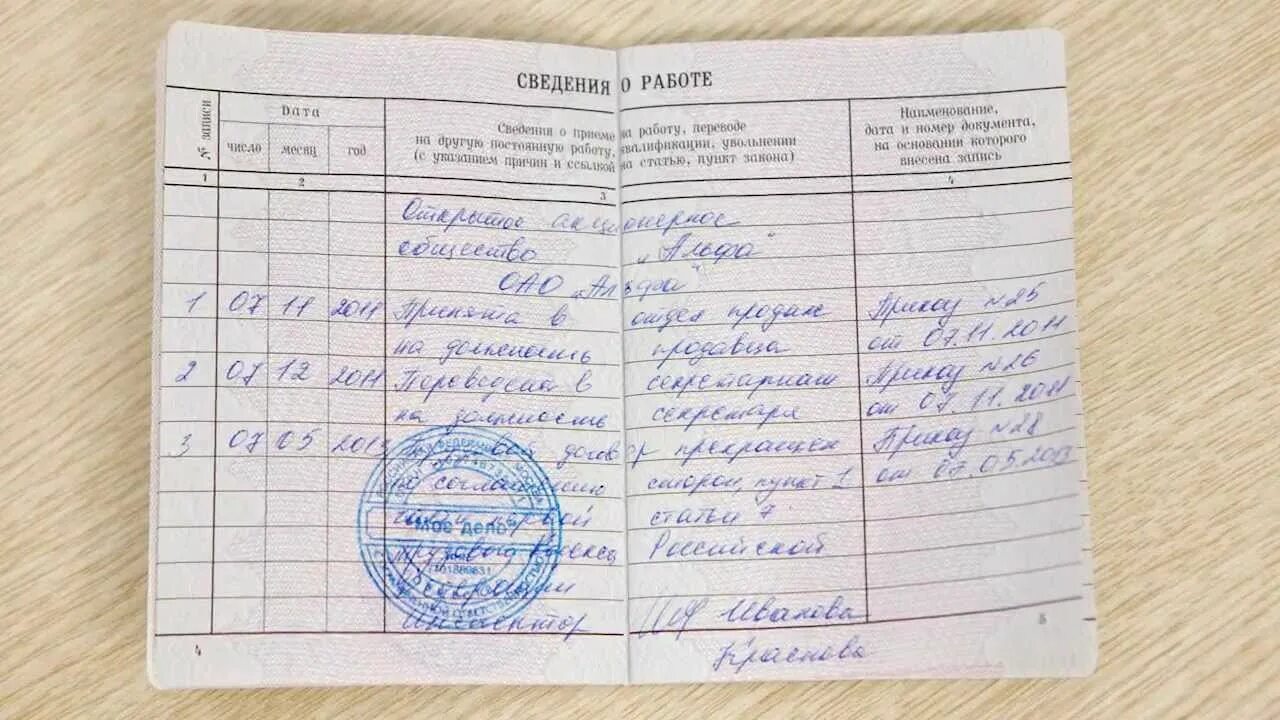 СВЕДЕНИЯ О РАБОТЕ
№ записи
Дата
число месяц год
Сведения о приеме на работу, переводе
на другую постоянную работу, квалификации, увольнении
(с указанием причин и ссылкой на статью, пункт закона)
Наименование,
дата и номер документа,
на основании которого
внесена запись
1 2 3 4
Открытое акционерное
общество „Альфа"
ОАО „Альфа"
1 07 11 2011 Принята в отдел продаж Приказ №25
на должность продавца от 07.11.2011
2 07 12 2011 Переведена в секретариат Приказ №26
на должность секретаря от 07.11.2011
3 07 05 2013 договор прекращен Приказ №28
по соглашению сторон, пункт 1 от 07.05.2013
части первой статьи 7
Трудового Кодекса Российской
Федерации
Инспектор Иванова
Краснова
МОЕ ДЕЛО
4
5